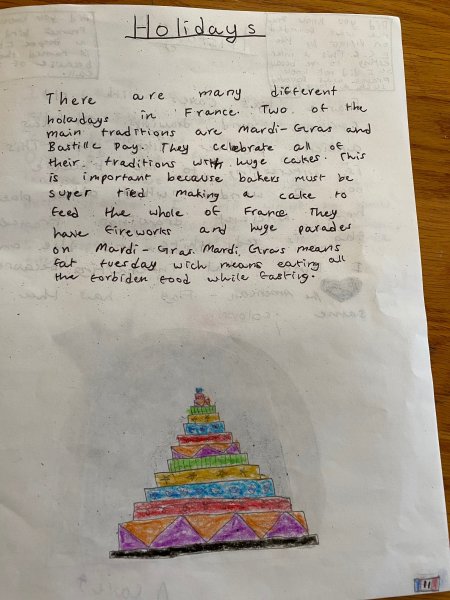 Holidays
There are many different
holadays in France. Two of the
main traditions are Mardi-Gras and
Bastille Day. They celebrate all of
their traditions with huge cakes. This
is important because bakers must be
super tied making a cake to
feed the whole of France They
have fireworks and huge parades
on Mardi-Gras. Mardi Gras means
fat tuesday wich means eating all
the forbiden food while fasting.
11